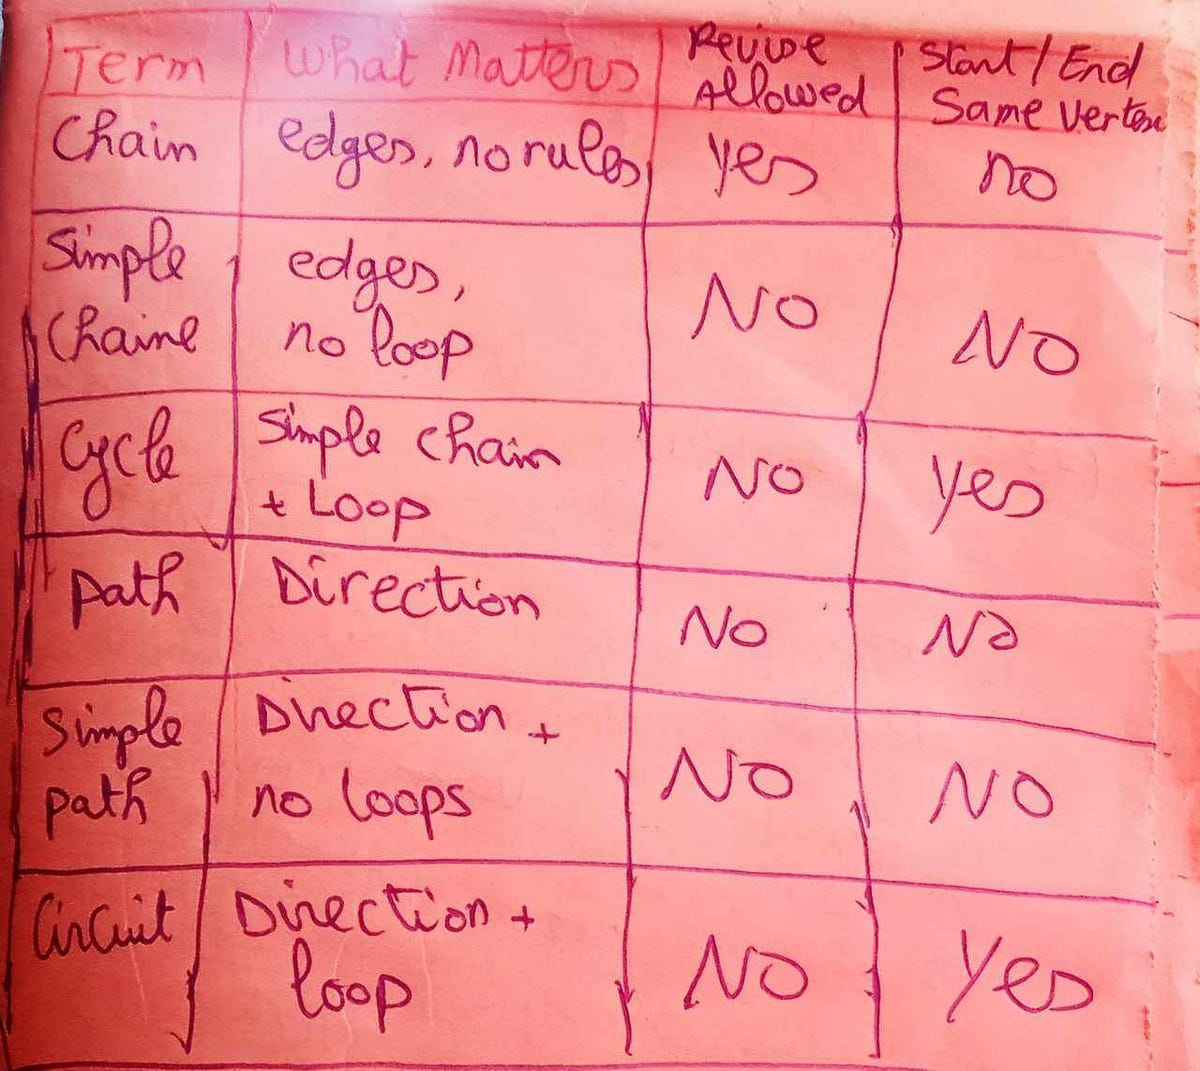 Term What Matters Revise Allowed Start/End Same Vertex
Chain edges, no rules yes no
Simple Chaine edges, no loop NO NO
Cycle Simple chain + Loop NO yes
path Direction No No
Simple path Direction + no loops NO NO
Circuit Direction + loop NO Yes